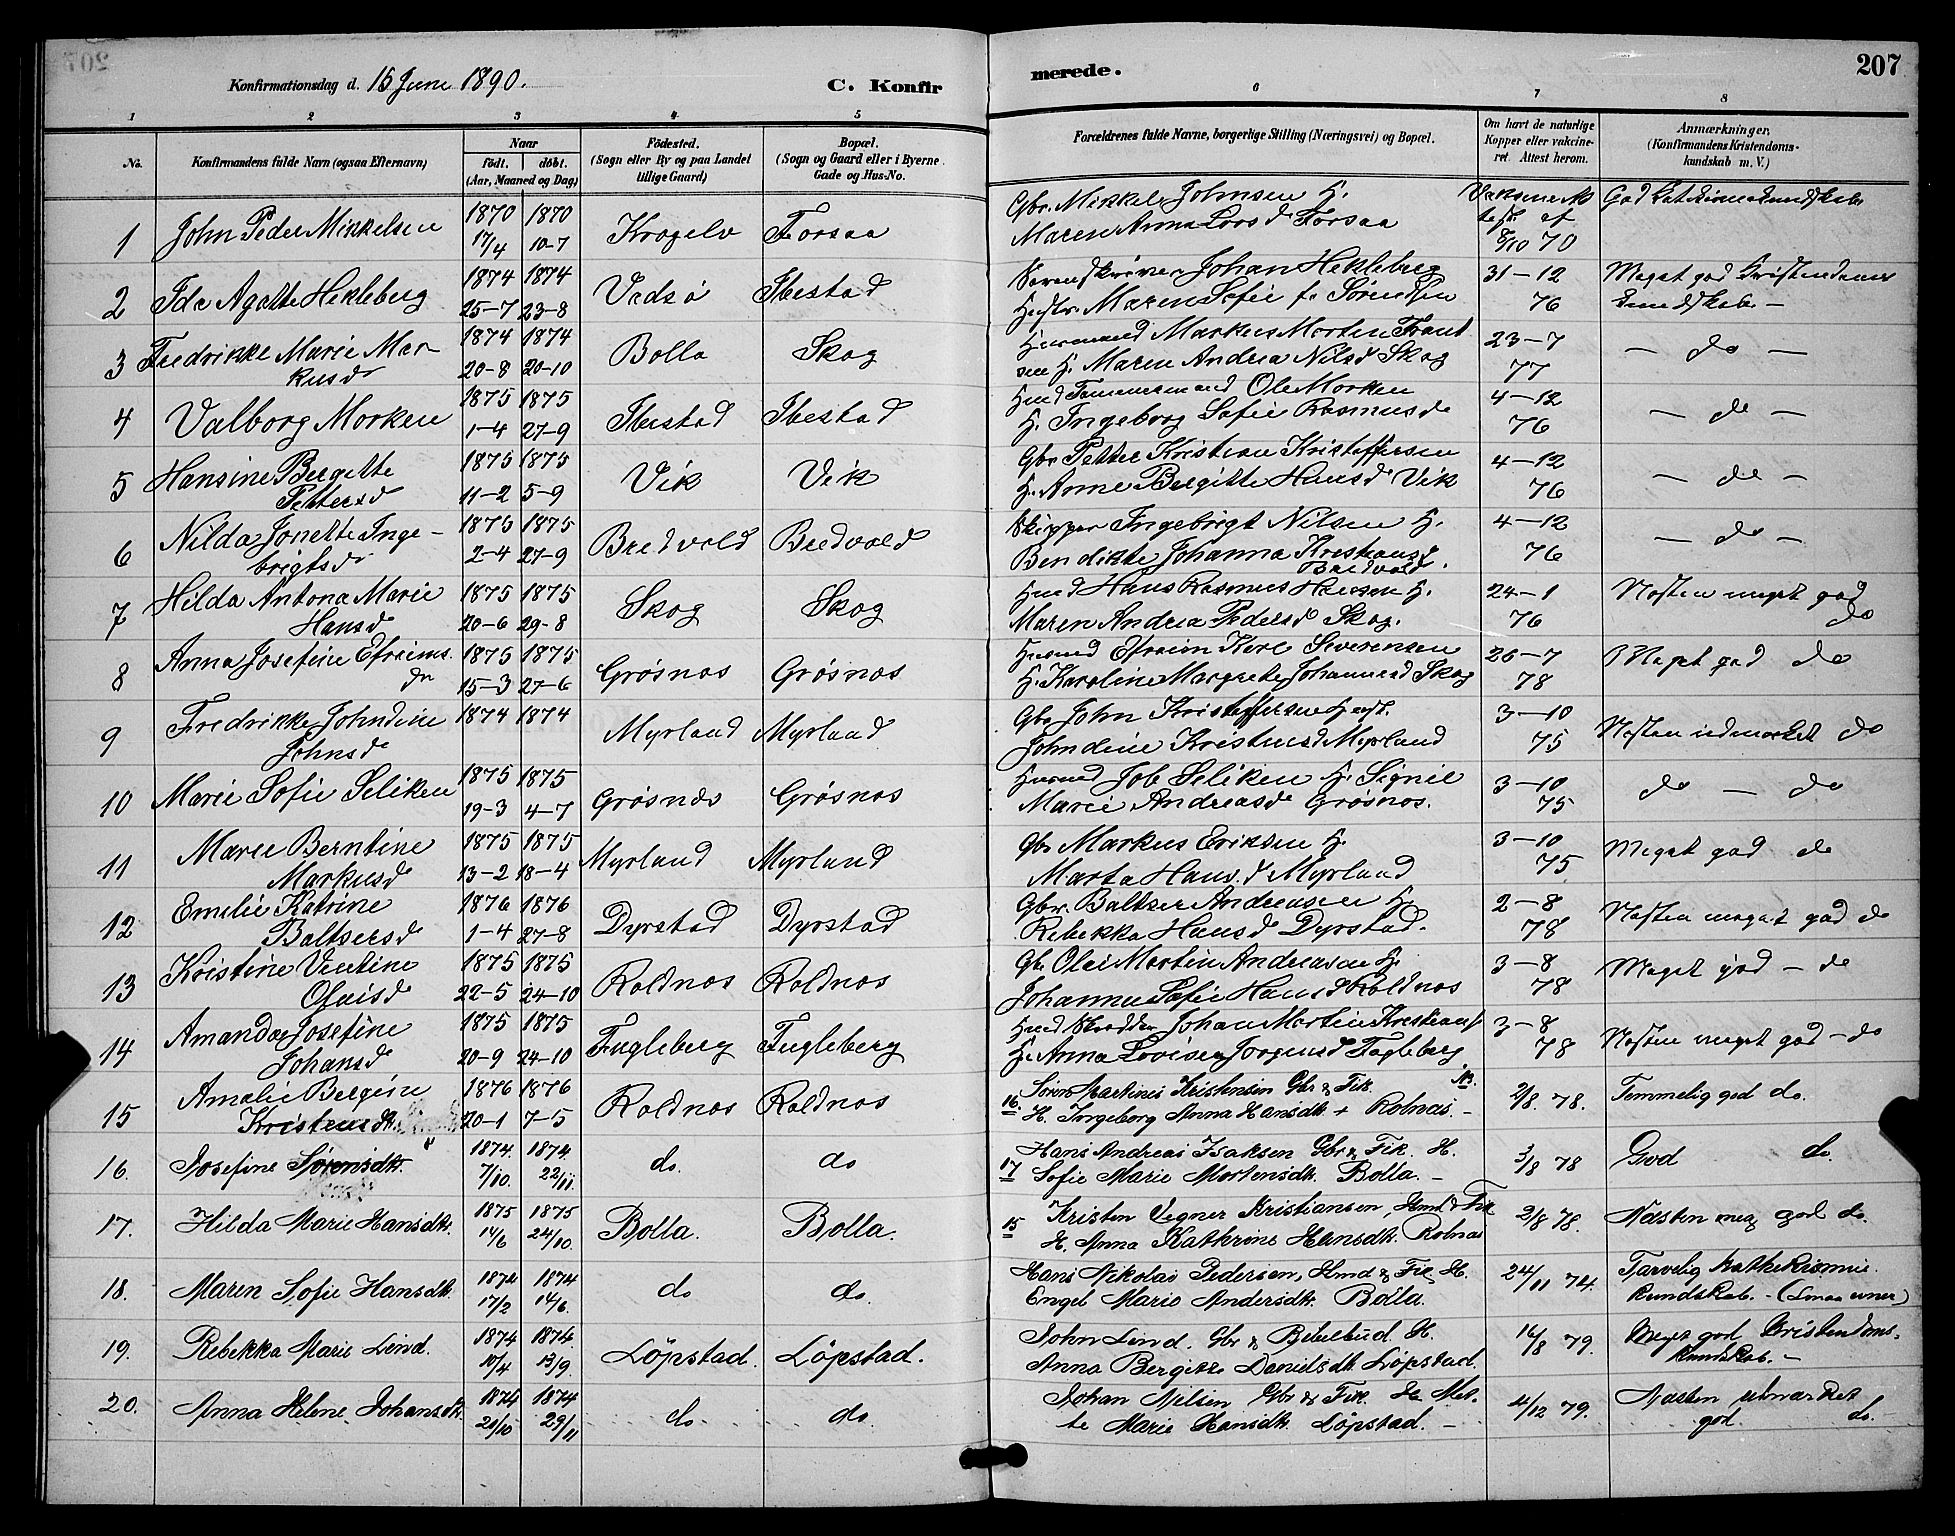 207
Konfirmationsdag d. 15 Juni 1890.
C. Konfirmerede.
1 2 3 4 5 6 7 8
No.
Konfirmandens fulde Navn (ogsaa Efternavn)
Naar
født. døbt.
(Aar, Maaned og Dag)
Fødested.
(Sogn eller By og paa Landet
tillige Gaard)
Bopæl.
(Sogn og Gaard eller i Byerne
Gade og Hus-No.
Forældrenes fulde Navne, borgerlige Stilling (Næringsvei) og Bopæl.
Om havt de naturlige
Kopper eller vakcine-
ret. Attest herom.
Anmærkninger,
(Konfirmandens Kristendoms-
kundskab m. V.)
1 John Peder Mikkelsen 1870 17/4 1870 10-7 Krogelv Forsaa
Gbr. Mikkel Johnsen H.
Maren Anna Larsd Forsaa
af 8/10 70
God
2 Ida Agatte Hekleberg 1874 25-7 1874 23-8 Vadsø Ibestad
Johan Hekleberg
Hustr. Maren Sofie f. Sørensen
31-12 76
Meget god Kristendoms
kundskab -
3 Fredrikke Marie Mar-
kusd 1874 20-8 1874 20-10 Bolla Skog
Husmand Markus Morten Frant
sen H. Maren Andrea Nilsd Skog
23-7 77
- do -
4 Valborg Morken 1875 1-4 1875 27-9 Ibestad Ibestad
Husd Tømmermand Ole Morken
H. Ingeborg Sofie Rasmusd
4-12 76
- do -
5 Hansine Bergitte
Pettersd 1875 11-2 1875 5-9 Vik Vik
Gbr Petter Kristian Kristoffersen
H. Anne Bergitte Hansd Vik
4-12 76
- do -
6 Nilda Jonette Inge-
brigtsd 1875 2-4 1875 27-9 Bredvold Bredvold
Skipper Ingebrigt Nilsen H.
Bendikte Johanna Kristiansd
Bredvold.
4-12 76
- do -
7 Hilda Antona Marie
Hansd 1875 20-6 1875 29-8 Skog Skog
Husd Hans Rasmus Hansen H.
Maren Andrea Pedersd Skog.
24-1 76
Næsten meget god
do
8 Anna Josefine Efraims
dr 1875 15-3 1875 27-6 Grøsnæs Grøsnæs
Husmd Efraim Karl Severensen
H. Karoline Margrete Johannesd Skog
26-7 78
Meget god do
9 Fredrikke Johndine
Johnsd 1874 1874 Myrland Myrland
Gbr John Kristoffersen Hust.
Johndine Kristensd Myrland
3-10 75
Næsten udmærket do
10 Marie Sofie Seliken 1875 19-3 1875 4-7 Grøsnæs Grøsnæs
Husmd Job Seliken H. Signil
Marie Andreasd Grøsnæs.
3-10 75
do - do
11 Marie Berntine
Markusd 1875 13-2 1875 18-4 Myrland Myrland
Gbr Markus Eriksen H.
Marta Hansd Myrland
3-10 75
Meget god do
12 Emelie Katrine
Baltsersd 1876 1-4 1876 27-8 Dyrstad Dyrstad
Gbr. Baltser Andreasen H.
Rebekka Hansd Dyrstad.
2-8 78
Næsten meget god do
13 Kristine Ventine
Olaisd 1875 22-5 1875 24-10 Roldnæs Roldnæs
Gb. Olai Martin Andreasen H.
Johanna Sofie Hansd Roldnæs
3-8 78
Meget god - do
14 Amanda Josefine
Johansd 1875 20-9 1875 24-10 Fugleberg Fugleberg
Husd Skrædder Johan Martin Kristians
H. Anna Lovise Jørgensd Fugleberg
3-8 78
Næsten meget god - do
15 Amalie Bergine
Kristensdtr. 1876 20-1 1876 7-5 Roldnæs Roldnæs
16 Søren Martinus Kristensen Gbr & Fisk.
H. Ingeborg Anna Hansdtr + Rolnæs. -
2/8. 78.
Temmelig god do.
16. Josefine Sørensdtr. 1874. 7/10. 1874. 22/11. do. do
17 Hans Andreas Isaksen Gbr & Fisk. H.
Sofie Marie Mortensdtr. Bolla. -
3/8 78
God do.
17. Hilda Marie Hansdtr. 1875 14/6 1875 24/10. Bolla. Bolla.
15 Kristen Vegner Kristiansen, Hmd & Fisk
H. Anna Kathrine Hansdtr. Rolnæs
2/8 78.
Næsten meg god do.
18. Maren Sofie Hansdtr. 1874 17/2 1874 14/6. do do.
Hans Nikolai Pedersen, Hmd & Fisk H.
Engel Marie Andersdtr. Bolla.
24/11 74.
Tarvelig
kundskab. -
19. Rebekka Marie Lind. 1874 10/4 1874. 13/9. Løpstad. Løpstad.
John Lind. Gbr & H.
Anna Bergitte Danielsdtr Løpstad.
16/8 79.
Meget god Kristendoms-
kundskab. -
20. Anna Helene Johansdtr. 1874 1874 29/11 do. do.
Johan Nilsen Gbr & Fisk H. Met-
te Marie Hansdtr. Løpstad. -
4/12 79.
Næsten utmærket
god. do.